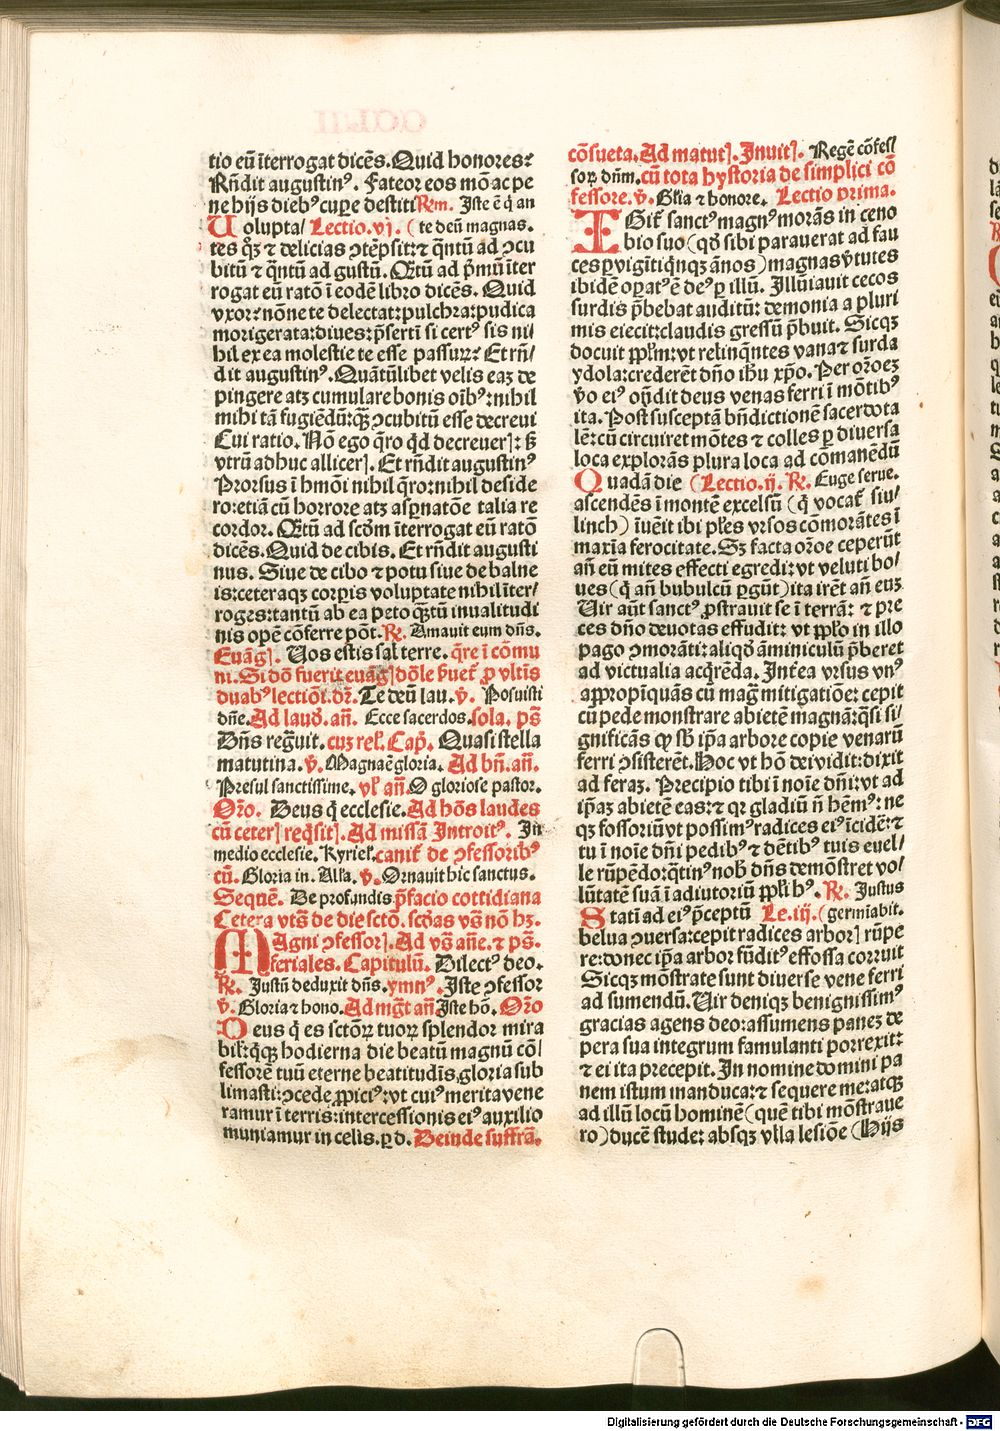 tio eū īterrogat dicēs. Quid honores:
Rñdit augustinꝰ. Fateor eos mō ac pe
ne hijs diebꝰ cupe destiti Rm. Iste ē q̄ an
Uolupta/ Lectio.vj. ( te deū magnas.
tes q̄ꝫ ⁊ delicias ꝯtēpsit: ⁊ q̄ntū ad ꝯcu
bitū ⁊ q̄ntū ad gustū. Qm̄tū ad p̄mū īter
rogat eū ratō ī eodē libro dicēs. Quid
vxor: nōne te delectat: pulchra: pudica
morigerata: diues: p̄sertī si certꝰ sis ni/
hil ex ea molestie te esse passurꝫ: Et rñ/
dit augustinꝰ. Quātūlibet velis eaꝫ de
pingere atꝫ cumulare bonis oībꝰ: nihil
mihi tā fugiēdū: qꝫ ꝯcubitū esse decreui
Cui ratio. Nō ego q̄ro q̄d decreuerꝭ: sꝫ
vtrū adhuc allicerꝭ. Et rñdit augustinꝰ
Prorsus ī hmōi nihil q̄ro: nihil deside
ro: etiā cū horrore atꝫ aspnatōe talia re
cordor. Qm̄tū ad scōm īterrogat eū ratō
dicēs. Quid de cibis. Et rñdit augusti
nus. Siue de cibo ⁊ potu siue de balne
is: ceteraqꝫ corpis voluptate nihil īter/
roges: tantū ab ea peto qꝫtū inualitudi
nis opē cōferre pōt. R. Amauit eum dñs.
Euāgꝭ. Uos estis sal terre. q̄re ī cōmu
ni. Si dō fuerit euāgꝭ dōle ħuerꝭ p vltīs
duabꝰ lectiōī. dꝫ. Te deū lau. v. Posuisti
dñe. Ad laud. añ. Ecce sacerdos. sola. ps
Dñs regnuit. cuꝫ rel. Cap. Quasi stella
matutina. v. Magna ē gloria. Ad bñ. añ.
Presul sanctissime. vl' añ. O gloriose pastor.
Orō. Deus q̄ ecclesie. Ad hōs laudes
cū ceterꝭ reqsitꝭ. Ad missā Introitꝰ. In
medio ecclesie. Kyriel'. canit' de ꝯfessoribꝰ
cū. Gloria in. Alla. v. Ornauit hic sanctus.
Sequē. De profundis. p̄facio cottidiana
Cetera vts̄ de die sctō. scōas vs̄ nō hꝫ.
Magni ꝯfessorꝭ. Ad vs̄ añe. ⁊ ps̄.
feriales. Capitulū. Dilectꝰ deo.
R. Justū deduxit dñs. ymnꝰ. Iste ꝯfessor
v. Gloria ⁊ hono. Ad mg̃t añ Iste hō. Orō
Deus q̄ es sctōꝝ tuoꝝ splendor mira
bil': q̄qꝫ hodierna die beatū magnū cō/
fessorē tuū eterne beatitudīs, gloria sub
limasti: ꝯcede ꝓpiciꝰ: vt cuiꝰ merita vene
ramur ī terris: intercessionis eiꝰ auxilio
muniamur in celis. p d. Deinde suffrā.
cōsueta. Ad matutꝭ. Inuitꝭ. Regē cōfess
soꝝ dñm. cū tota hystoria de simplici cō
fessore. v. Glia ⁊ honore. Lectio prima.
IGit' sanctꝰ magnꝰ morās in ceno
bio suo (qd sibi parauerat ad fau
ces p vigīti q̄nqꝫ ānos) magnas v̄tutes
ibidē opatꝰ ē deꝰ p illū. Illūiauit cecos
surdis p̄bebat auditū: demonia a pluri
mis eiecit: claudis gressū p̄buit. Sicqꝫ
docuit ꝓplm: vt relinq̄ntes vana ⁊ surda
ydola: crederēt dño ihū xp̄o. Per orōeꝫ
vo eiꝰ oñdit deus venas ferri ī mōtibꝰ
ita. Post susceptā bñdictionē sacerdota
lē: cū circuiret mōtes ⁊ colles p diuersa
loca explorās plura loca ad cōmanēdū
Quadā die (Lectio.ij. R. Euge serue.
ascendēs ī montē excelsū (q̄ vocat' siu/
linch) īuēit ibi ples vrsos cōmorātes ī
maxīa ferocitate. Sꝫ facta orōe ceperūt
añ eū mites effecti egredi: vt veluti bo/
ues (q̄ añ bubulcū pgūt) ita irēt añ euꝫ
Uir aūt sanctꝰ ꝓstrauit se ī terrā: ⁊ pre
ces dño deuotas effudit: vt ꝓplo in illo
pago ꝯmorāti: aliqd āminiculū p̄beret
ad victualia acq̄rēda. Int̄ea vrsus vnꝰ
appropīquās cū mag̃ mitigatiōe: cepit
cū pede monstrare abietē magnā: q̄si si/
gnificās qꝫ sb ip̄a arbore copie venarū
ferri ꝯsisterēt. Hoc vt hō dei vidit: dixit
ad feraꝫ. Precipio tibi ī noīe dñi: vt ad
ip̄aꝫ abietē eas: ⁊ qꝛ gladiū ñ hēmꝰ: ne
qꝫ fossoriū vt possimꝰ radices eiꝰ īcidē: ⁊
tu ī noīe dñi pedibꝰ ⁊ dētibꝰ tuis euel/
le rūpēdo: q̄tinꝰ nob dñs demōstret vo/
lūtatē suā ī adiutoriū ꝓpli hꝰ. R. Justus
Statī ad eiꝰ p̄ceptū Le.iij. (germīabit.
belua ꝯuersa: cepit radices arborꝭ rūpe
re: donec ip̄a arbor fūditꝰ effossa corruit
Sicqꝫ mōstrate sunt diuerse vene ferri
ad sumendū. Uir deniqꝫ benignissimꝰ
gracias agens deo: assumens paneꝫ de
pera sua integrum famulanti porrexit:
⁊ ei ita precepit. In nomine domini pa
nem istum manduca: ⁊ sequere me: atqꝫ
ad illū locū hominē (quē tibi mōstraue
ro) ducē stude: absqꝫ vlla lesiōe (Hijs
Digitalisierung gefördert durch die Deutsche Forschungsgemeinschaft - DFG